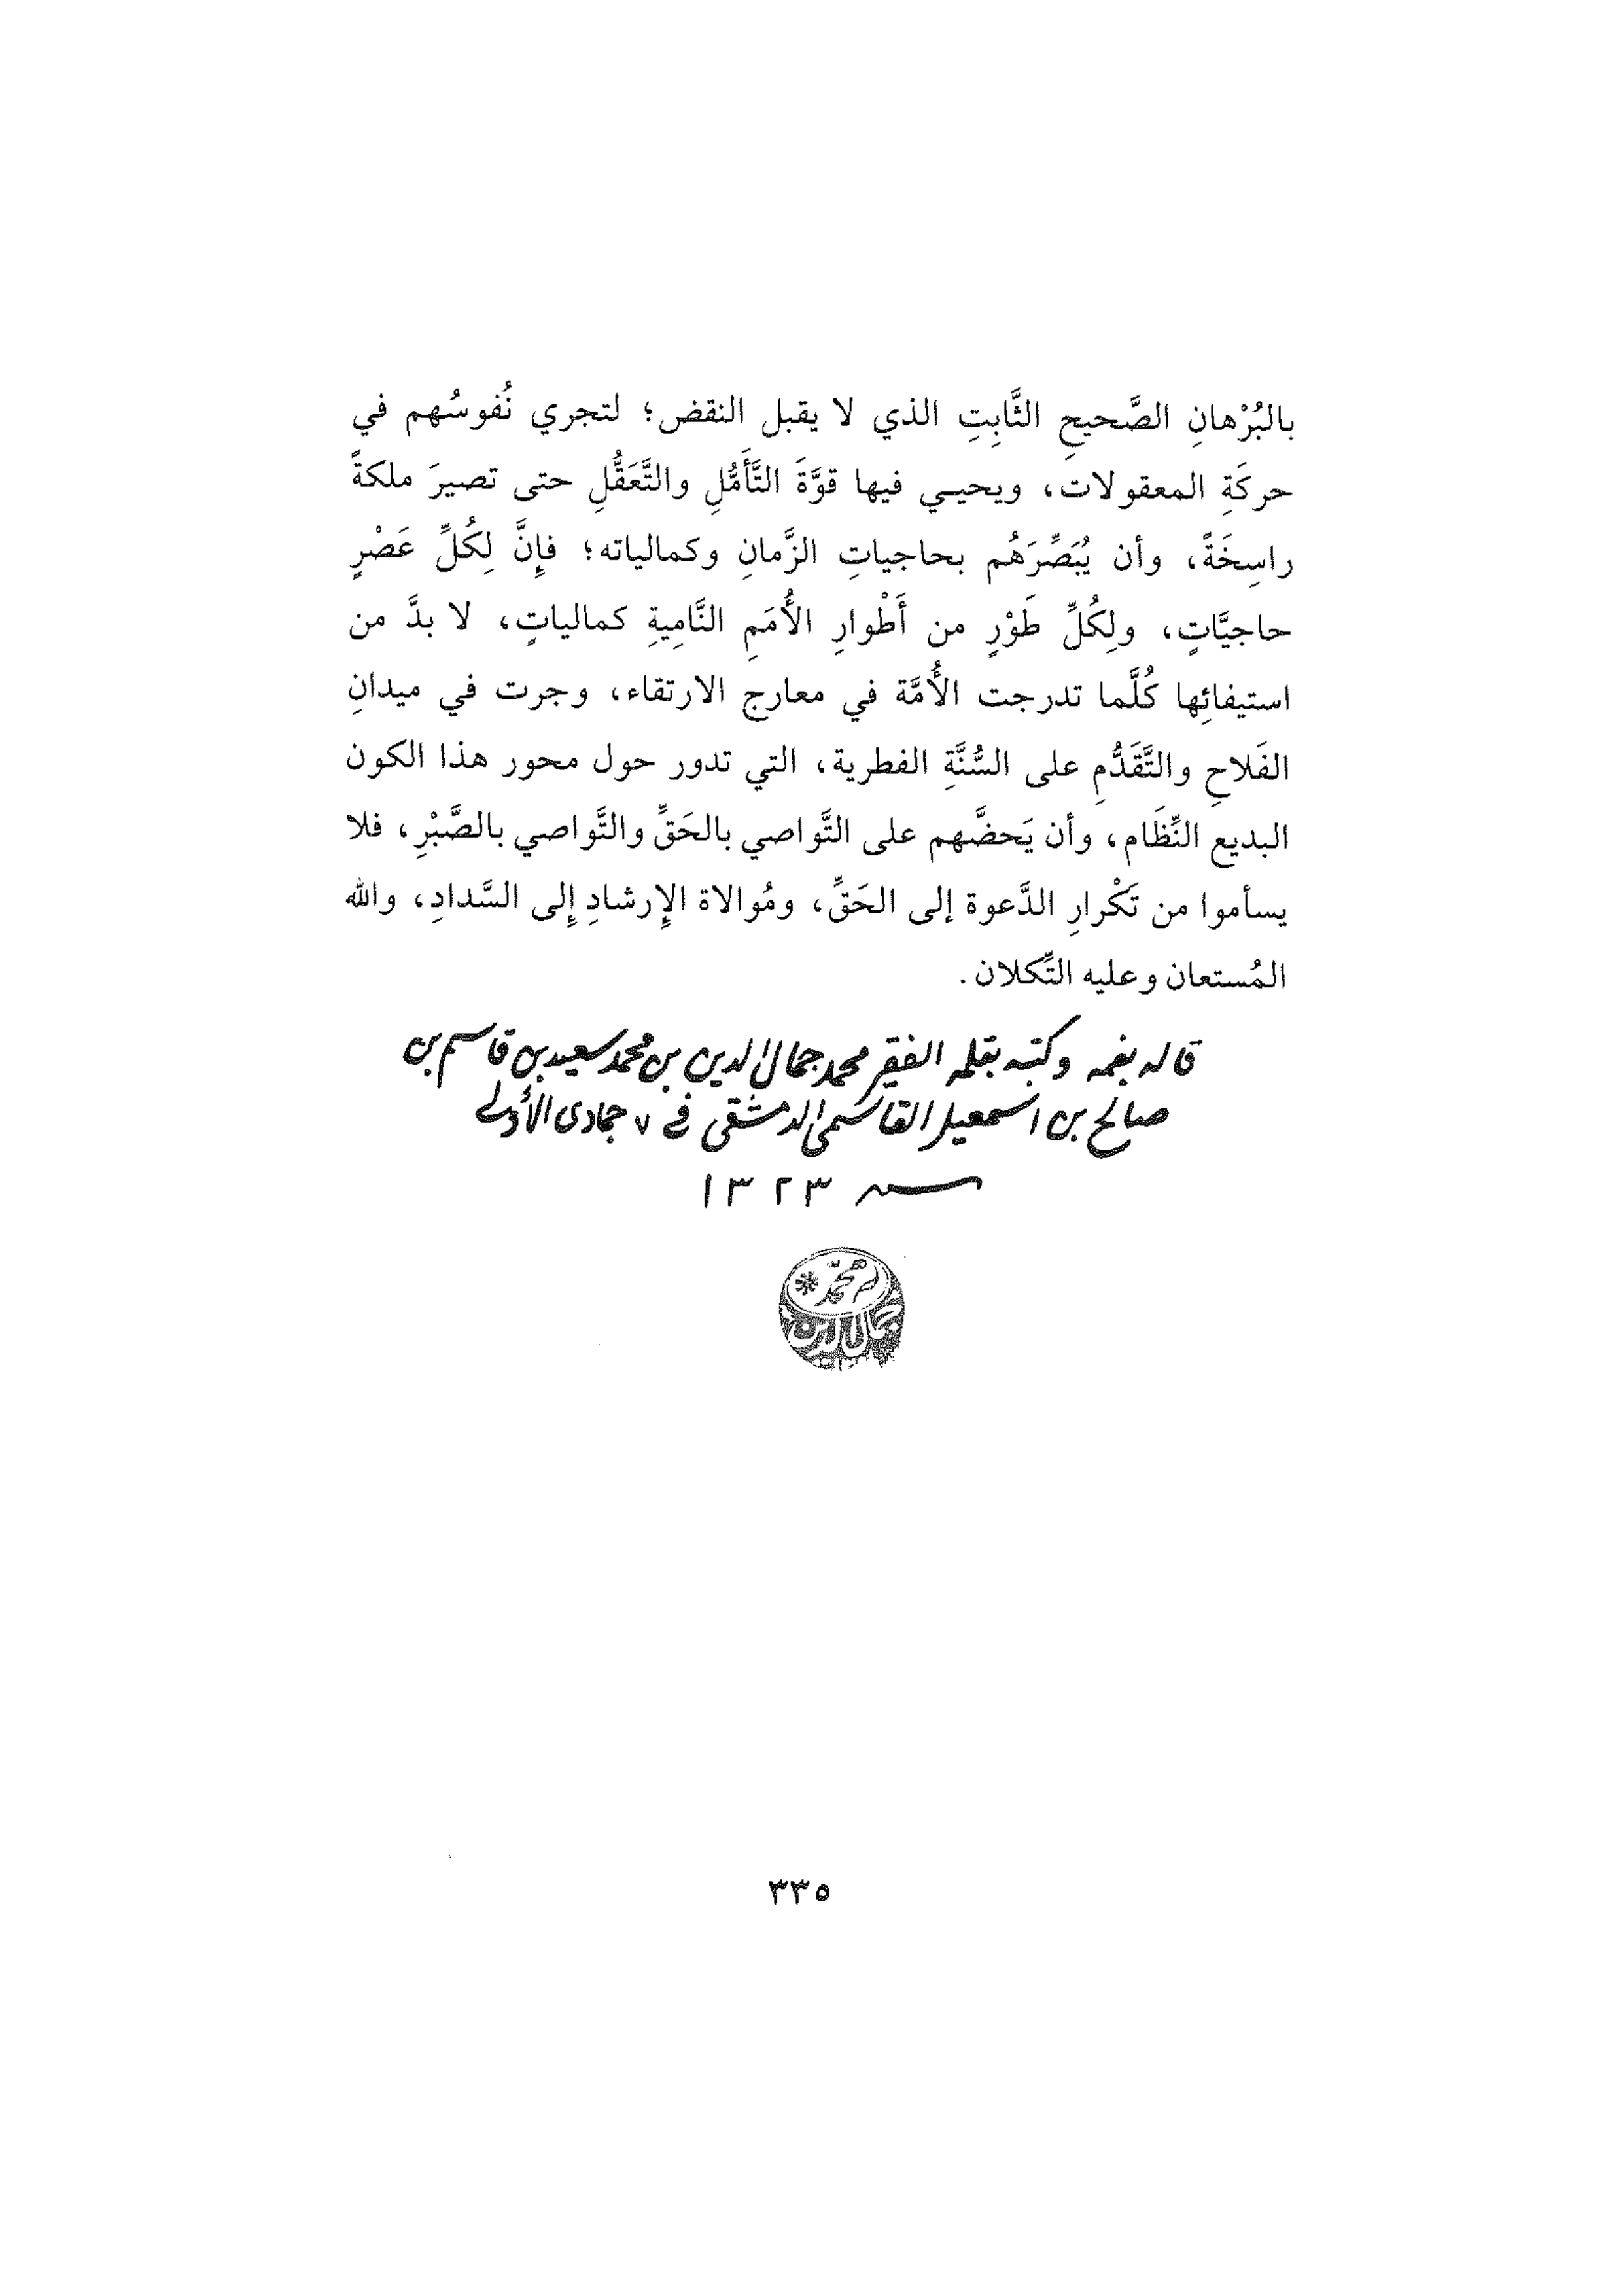 بالبُرْهانِ الصَّحيحِ الثَّابِتِ الذي لا يقبل النقض؛ لتجري نُفوسُهم في
حركَةِ المعقولات، ويحيـي فيها قوَّةَ التَّأَمُّلِ والتَّعَقُّلِ حتى تصيرَ ملكةً
راسِخَةً، وأن يُبَصِّرَهُم بحاجياتِ الزَّمانِ وكمالياته؛ فإِنَّ لِكُلِّ عَصْرٍ
حاجيَّاتٍ، ولِكُلِّ طَوْرٍ من أَطْوارِ الأُمَمِ النَّامِيةِ كمالياتٍ، لا بدَّ من
استيفائِها كُلَّما تدرجت الأُمَّة في معارج الارتقاء، وجرت في ميدانِ
الفَلاحِ والتَّقَدُّمِ على السُّنَّةِ الفطرية، التي تدور حول محور هذا الكون
البديع النِّظَام، وأن يَحضَّهم على التَّواصي بالحَقِّ والتَّواصي بالصَّبْرِ، فلا
يسأموا من تَكْرارِ الدَّعوة إلى الحَقِّ، ومُوالاة الإِرشادِ إِلى السَّدادِ، والله
المُستعان وعليه التِّكلان.
قاله بفمه وكتبه بقلمه الفقير محمد جمال الدين بن محمد سعيد بن قاسم بن
صالح بن اسمعيل القاسمي الدمشقي في ٧ جمادى الأولى
سنه ١٣٢٣
محمد
جمال الدين
٣٣٥